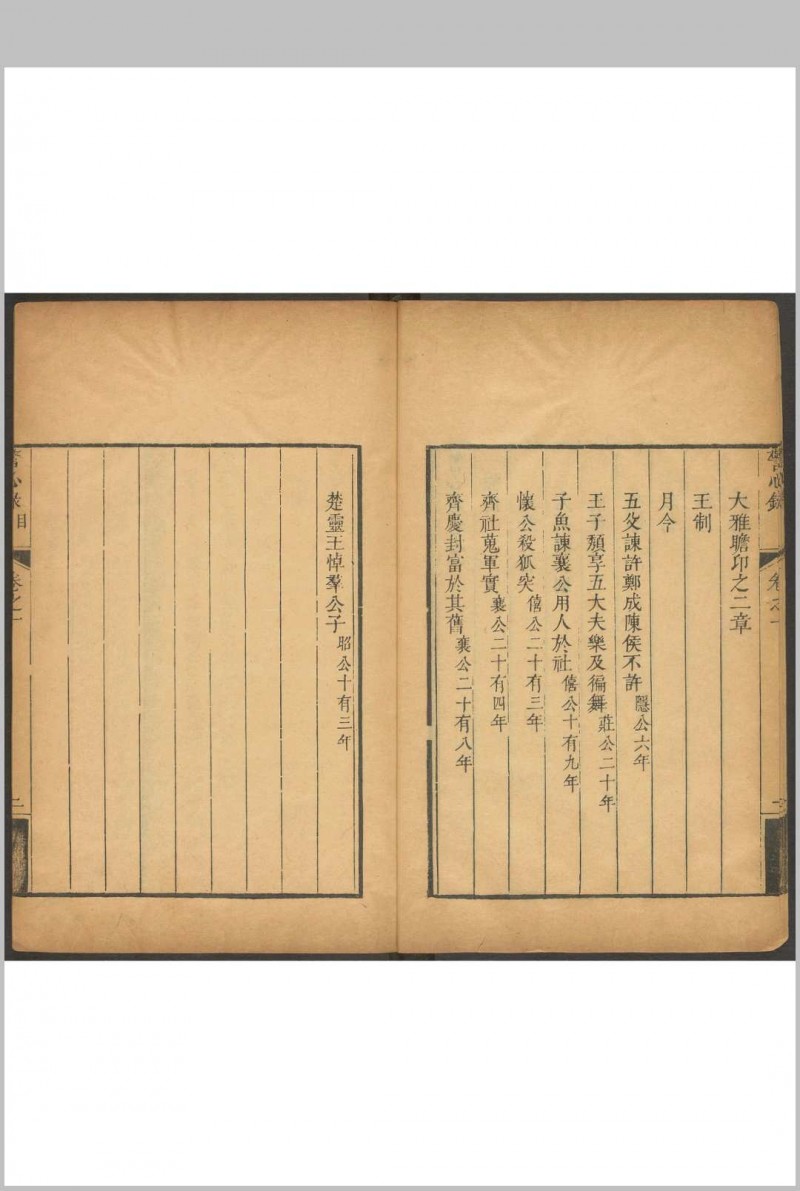 大雅瞻卬之二章
王制
月令
五父諫許鄭成陳侯不許 隱公六年
王子頽享五大夫樂及徧舞 莊公二十年
子魚諫襄公用人於社 僖公十有九年
懷公殺狐突 僖公二十有三年
齊社蒐軍實 襄公二十有四年
齊慶封富於其舊 襄公二十有八年
楚靈王悼羣公子 昭公十有三年
心錄目
卷之一
二